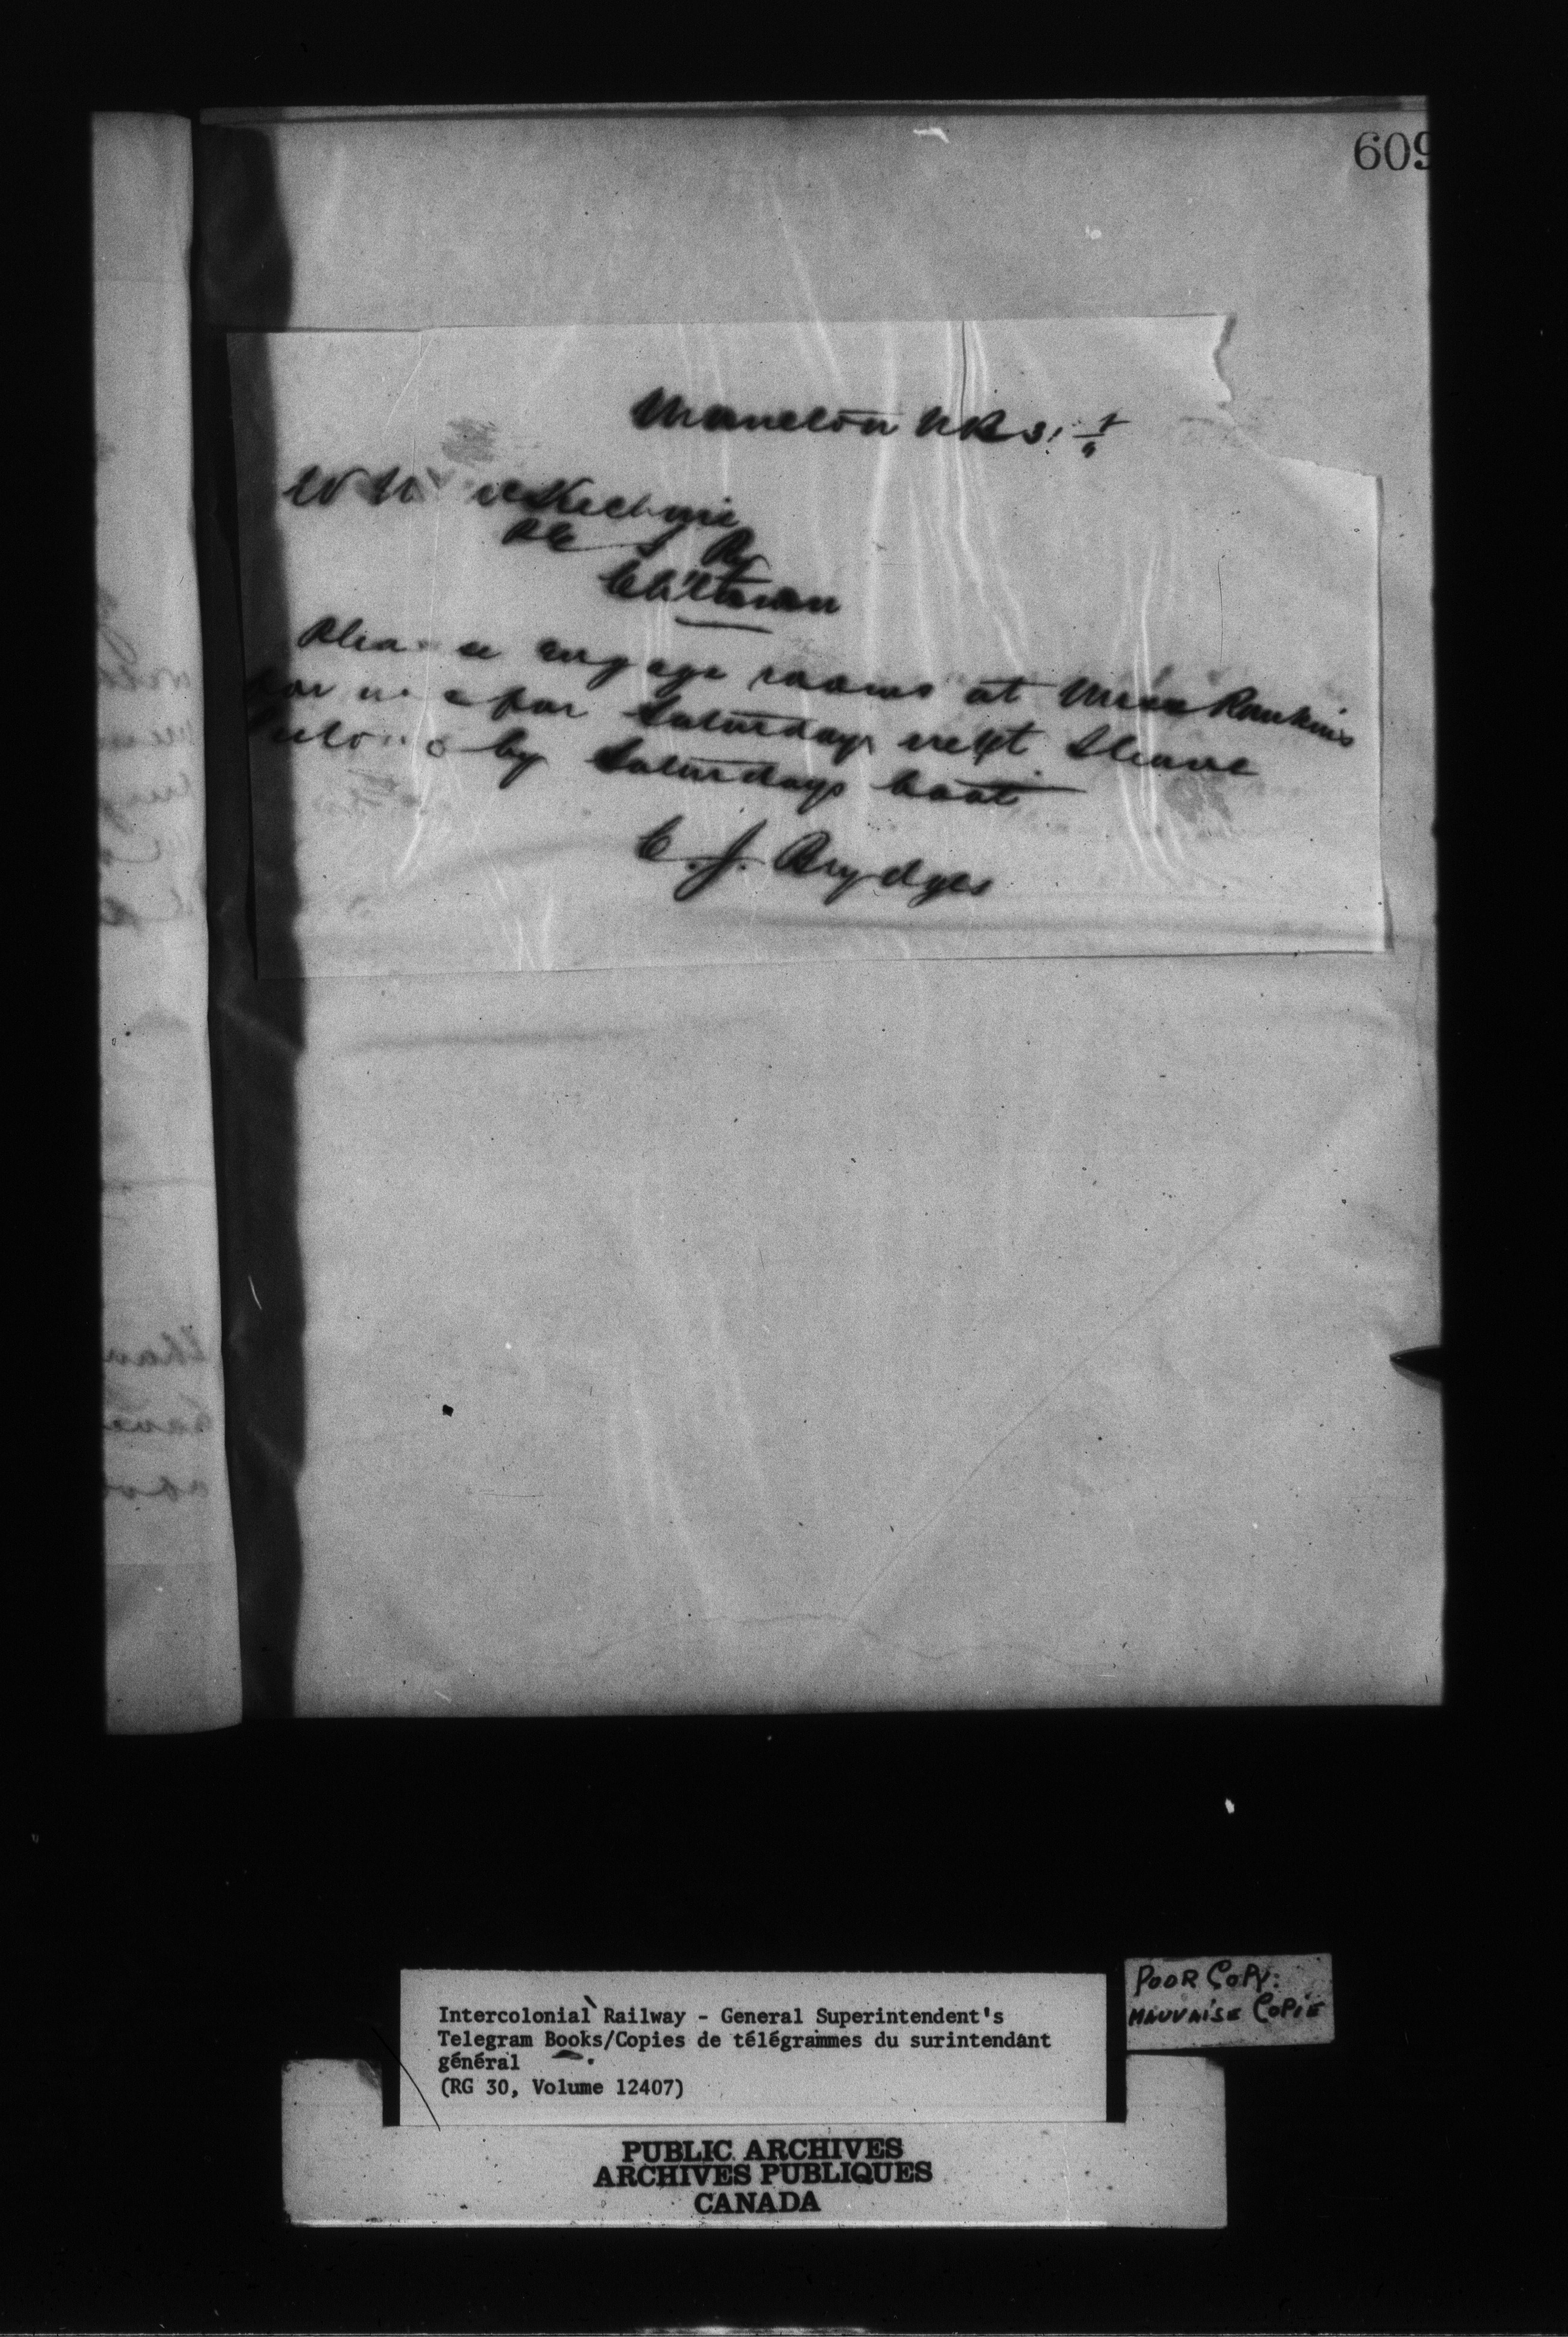 609
Moncton NB 31
W M McKechnie
P E I Ry
Ch'town
Please engage rooms at Miss Rankins
for me for Saturday next I leave
Pictou by Saturdays boat
C. J. Brydges
Intercolonial Railway - General Superintendent's
Telegram Books/Copies de télégrammes du surintendant
général
(RG 30, Volume 12407)
POOR COPY:
MAUVAISE COPIE
PUBLIC ARCHIVES
ARCHIVES PUBLIQUES
CANADA